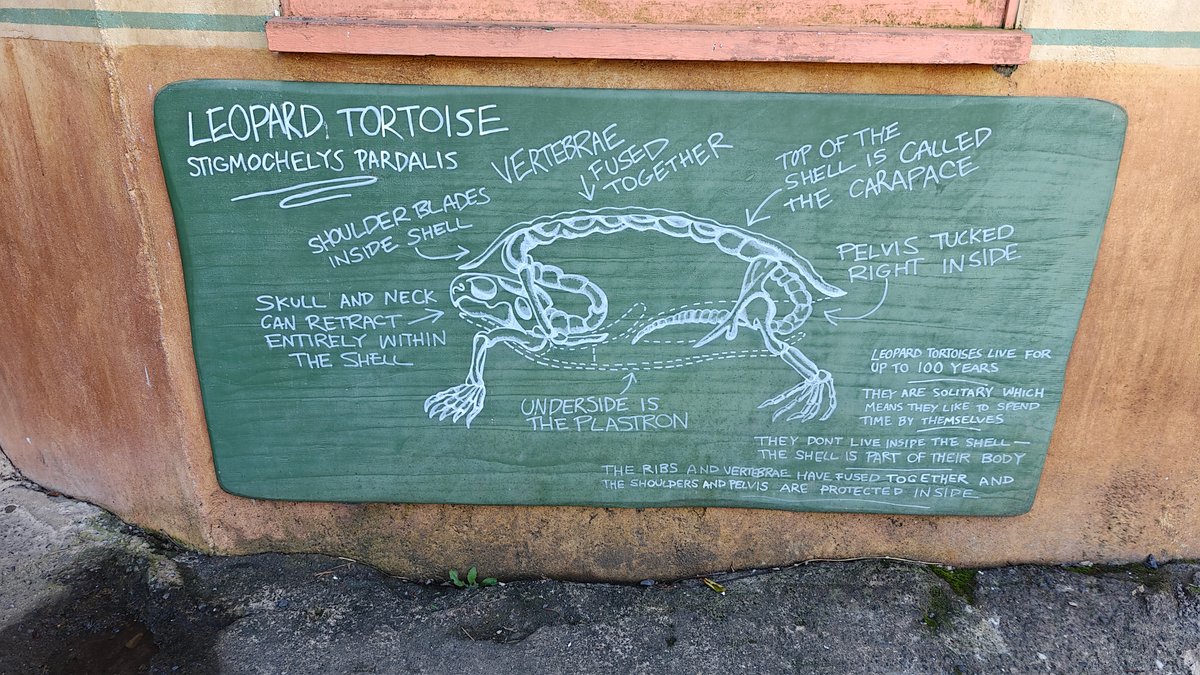 LEOPARD TORTOISE
STIGMOCHELYS PARDALIS
VERTEBRAE
FUSED
TOGETHER
TOP OF THE
SHELL IS CALLED
THE CARAPACE
SHOULDER BLADES
INSIDE SHELL
PELVIS TUCKED
RIGHT INSIDE
SKULL AND NECK
CAN RETRACT
ENTIRELY WITHIN
THE SHELL
UNDERSIDE IS
THE PLASTRON
LEOPARD TORTOISES LIVE FOR
UP TO 100 YEARS
THEY ARE SOLITARY WHICH
MEANS THEY LIKE TO SPEND
TIME BY THEMSELVES
THEY DONT LIVE INSIDE THE SHELL —
THE SHELL IS PART OF THEIR BODY
THE RIBS AND VERTEBRAE HAVE FUSED TOGETHER AND
THE SHOULDERS AND PELVIS ARE PROTECTED INSIDE